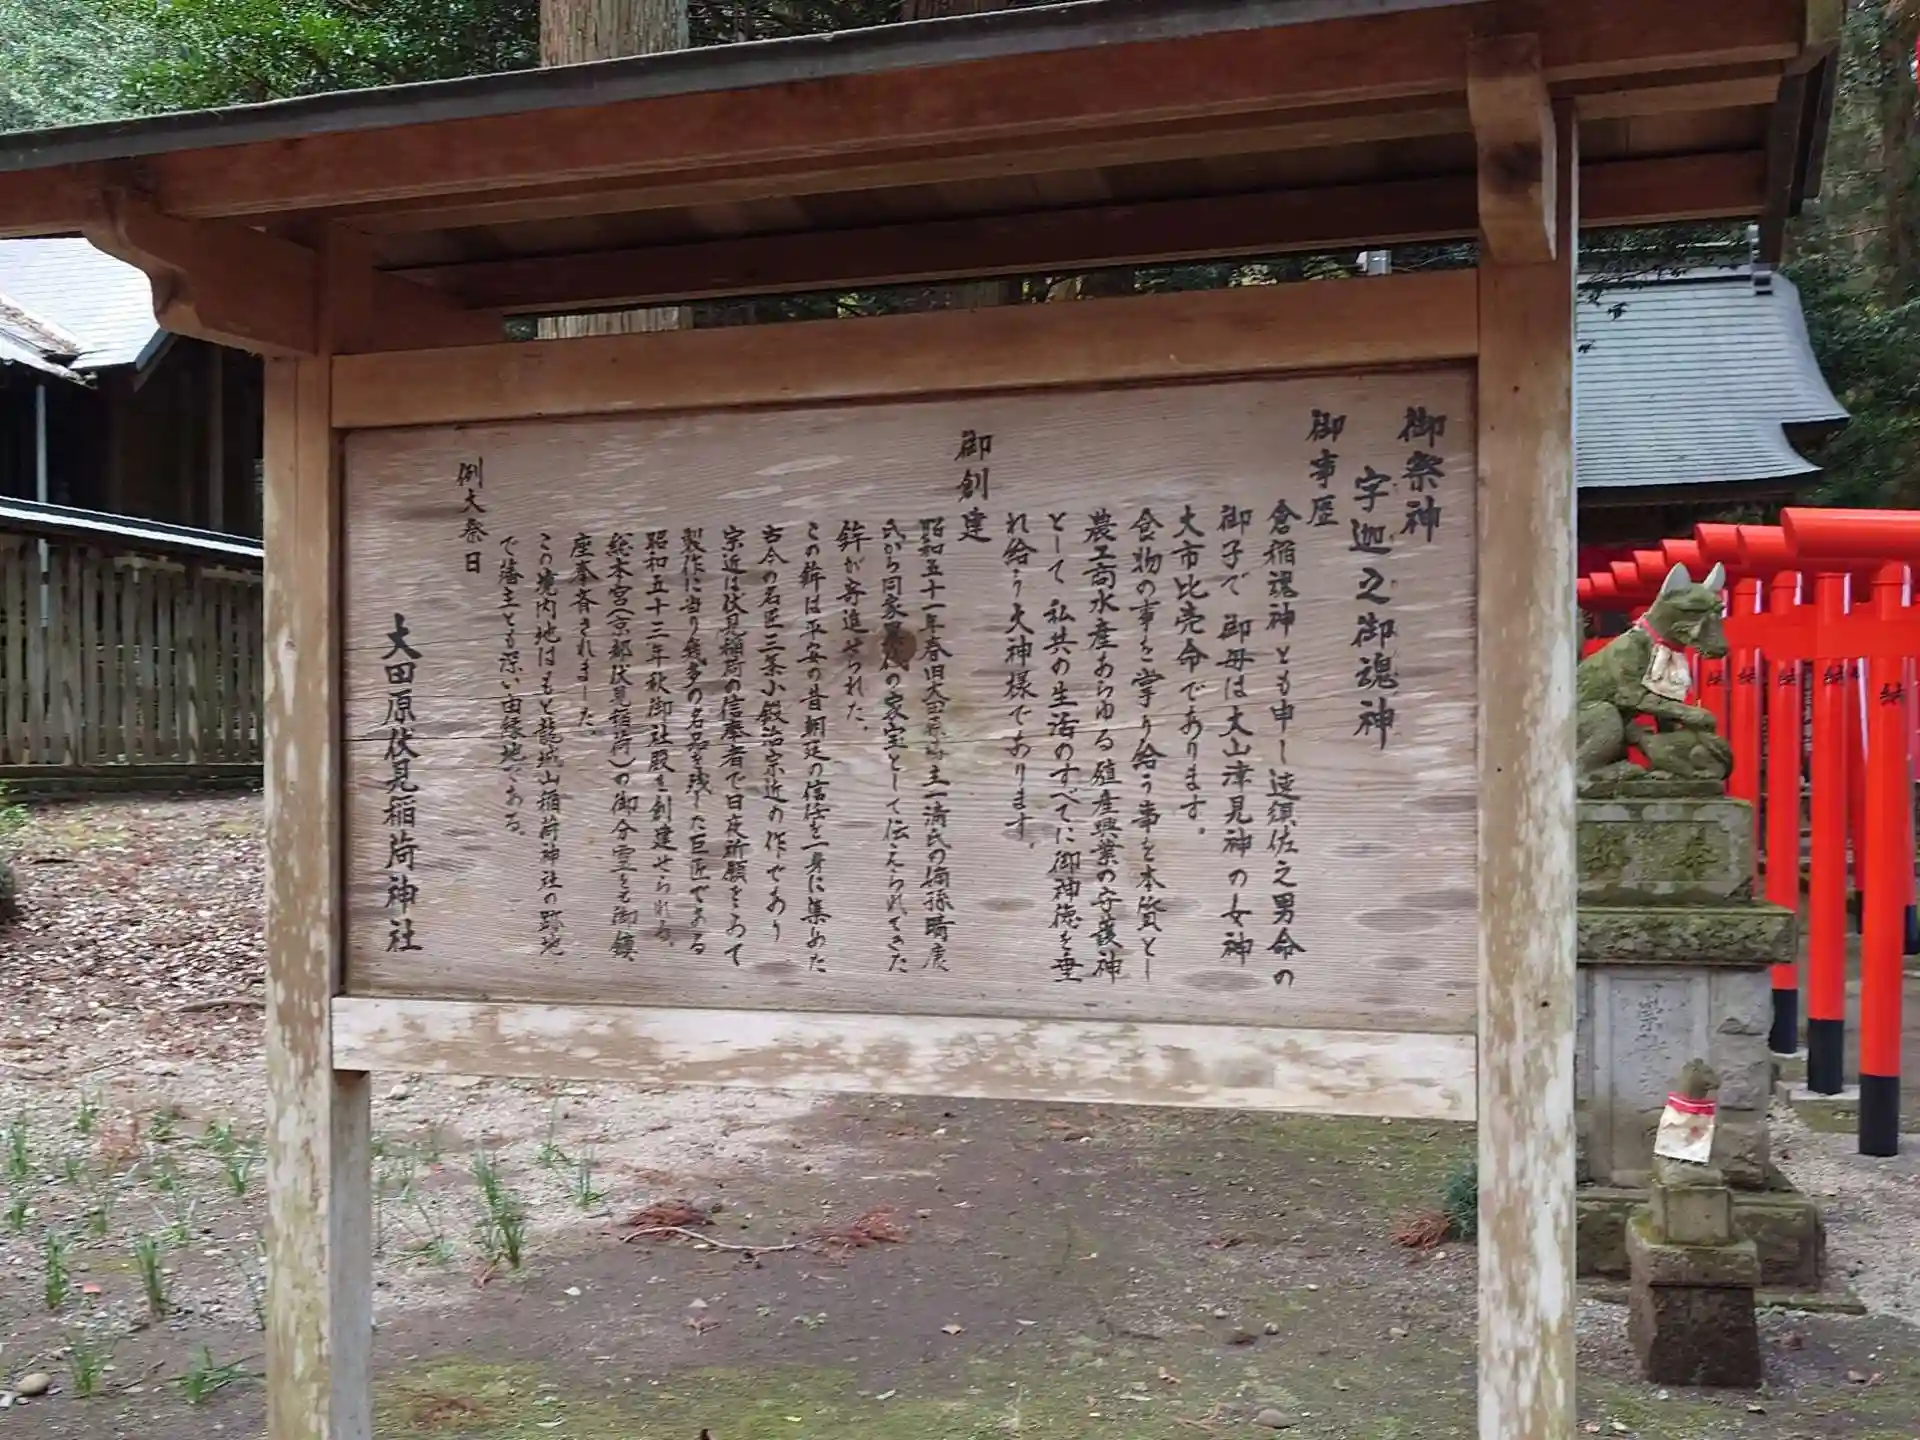 御祭神
宇迦之御魂神
御事歴
倉稲魂神とも申し速須佐之男命の
御子で 御母は大山津見神の女神
大市比売命であります。
食物の事を掌り給う事を本質とし
農工商水産あらゆる殖産興業の守護神
として 私共の生活のすべてに御神徳を垂
れ給う大神様であります。
御創建
昭和五十一年春旧大田原 主一清氏の嫡孫勝庚
氏から同家 の家宝として伝えられてきた
鉾が寄進せられた。
この鉾は平安の昔朝廷の信 を一身に集めた
古今の名匠三条小鍛治宗近の作であり
宗近は伏見稲荷の信奉者で日夜祈願をこめて
製作に当り幾多の名品を残した巨匠である
昭和五十三年秋御社殿を創建せられる。
総本宮(京都伏見稲荷)の御分霊を御鎮
座奉斉されました。
この境内地はもと龍城山稲荷神社の跡地
で藩主とも深い由縁地である。
例大祭日
大田原伏見稲荷神社
奉
崇敬
納
納
納
納